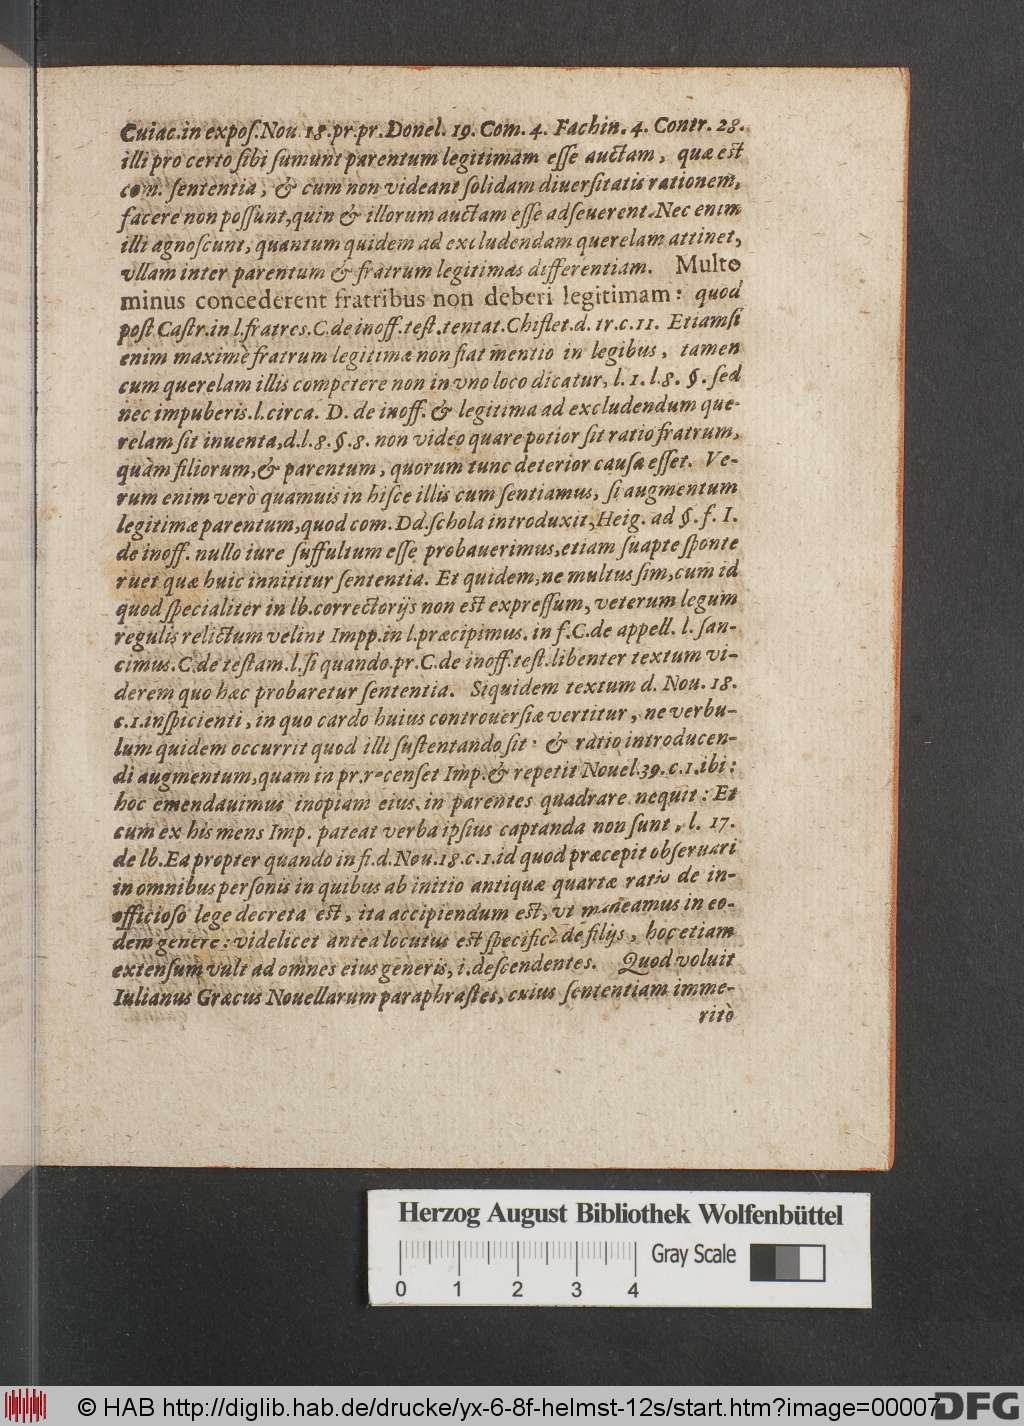 Cuiac.in expoſ.Nou. 18.pr.pr. Donel. 19. Com. 4. Fachin. 4. Contr. 28.
illi pro certo ſibi ſumunt parentum legitimam eſſe auctam, quæ eſt
com. ſententia, & cum non videant ſolidam diuerſitatis rationem,
facere non poſſunt, quin & illorum auctam eſſe adſeuerent. Nec enim
illi agnoſcunt, quantum quidem ad excludendam querelam attinet,
vllam inter parentum & fratrum legitimas differentiam. Multo
minus concederent fratribus non deberi legitimam: quod
poſt Caſtr.in l.fratres.C.de inoff.teſt.tentat.Chiflet.d. tr.c.11. Etiamſi
enim maximè fratrum legitimæ non fiat mentio in legibus, tamen
cum querelam illis competere non in vno loco dicatur, l. 1. l.8. §. ſed
nec impuberis.l.circa. D. de inoff. & legitima ad excludendum que-
relam ſit inuenta,d.l.8.§.8. non video quare potior ſit ratio fratrum,
quàm filiorum,& parentum, quorum tunc deterior cauſa eſſet. Ve-
rum enim verò quamuis in hiſce illis cum ſentiamus, ſi augmentum
legitimæ parentum,quod com. Dd.ſchola introduxit, Heig. ad §. f. I.
de inoff. nullo iure ſuffultum eſſe probauerimus,etiam ſuapte ſponte
ruet quæ huic innititur ſententia. Et quidem,ne multus ſim,cum id
quod ſpecialiter in lb.correctorijs non eſt expreſſum, veterum legum
regulis relictum velint Impp.in l.præcipimus. in f.C.de appell. l. ſan-
cimus.C.de teſtam.l.ſi quando.pr.C.de inoff.teſt.libenter textum vi-
derem quo hæc probaretur ſententia. Siquidem textum d. Nou. 18.
c.1.inſpicienti, in quo cardo huius controuerſiæ vertitur, ne verbu-
lum quidem occurrit quod illi ſuſtentando ſit: & ratio introducen-
di augmentum,quam in pr.recenſet Imp.& repetit Nouel.39.c.1.ibi:
hoc emendauimus inopiam eius, in parentes quadrare nequit: Et
cum ex his mens Imp. pateat verba ipſius captanda non ſunt, l. 17.
de lb.Ea propter quando in fi.d.Nou.18.c.1.id quod præcepit obſeruari
in omnibus perſonis in quibus ab initio antiquæ quartæ ratio de in-
officioſo lege decreta eſt, ita accipiendum eſt, vt maneamus in eo-
dem genere: videlicet antea locutus eſt ſpecificè de filijs, hoc etiam
extenſum vult ad omnes eius generis, i. deſcendentes. Quod voluit
Iulianus Græcus Nouellarum paraphraſtes, cuius ſententiam imme-
ritò
Herzog August Bibliothek Wolfenbüttel
Gray Scale
0 1 2 3 4
© HAB http://diglib.hab.de/drucke/yx-6-8f-helmst-12s/start.htm?image=00007
DFG